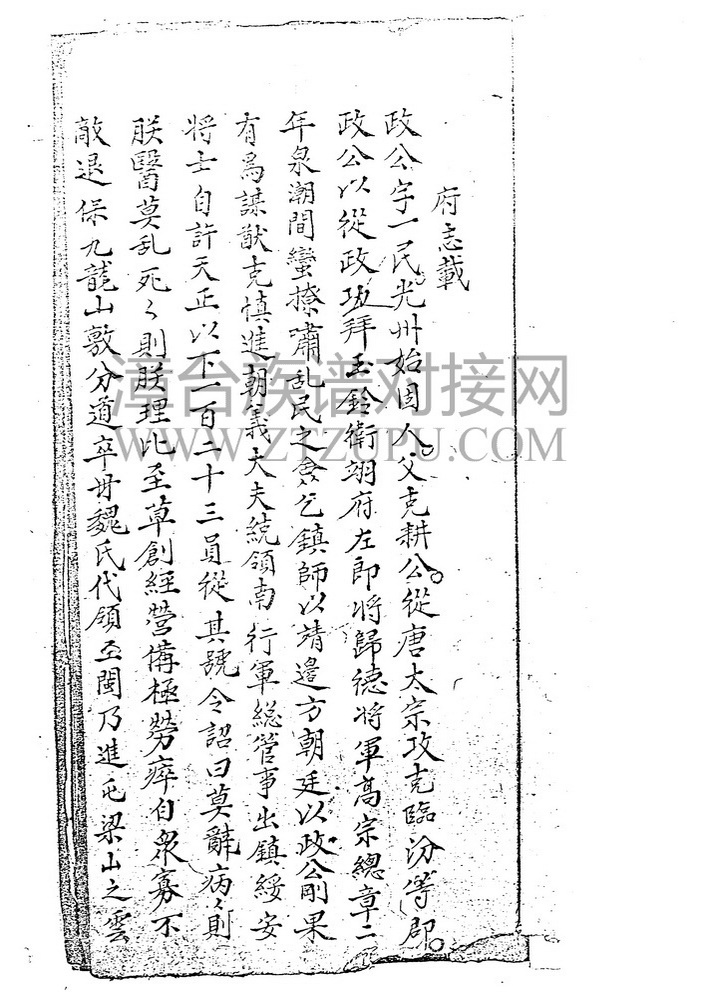 府志載
政公字一民光州始固人父克耕公從唐太宗攻克臨汾等郡
政公以從政功拜玉鈴衛翊府左郎將歸德將軍高宗總章二
年泉潮間蠻獠嘯乱民之僉乞鎮師以靖邉方朝廷以政公剛果
有爲謀猷克慎進朝義大夫統領南行軍総管事出鎮綏安
将士自許天正以下一百二十三員從其號令詔曰莫辭病〻則
朕醫莫乱死〻則朕理比至草創經營俻極勞瘁自衆寡不
敵退保九龍山敦分道卒毋魏氏代領至閩乃進屯梁山之雲
漳台族谱对接网
WWW.ZTZUPU.COM